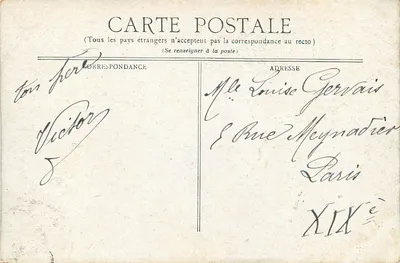 CARTE POSTALE
(Tous les pays étrangers n'acceptent pas la correspondance au recto)
(Se renseigner à la poste)
CORRESPONDANCE
ton frère
Victor
ADRESSE
Mlle Louise Gervais
5 Rue Meynadier
Paris
XIXè